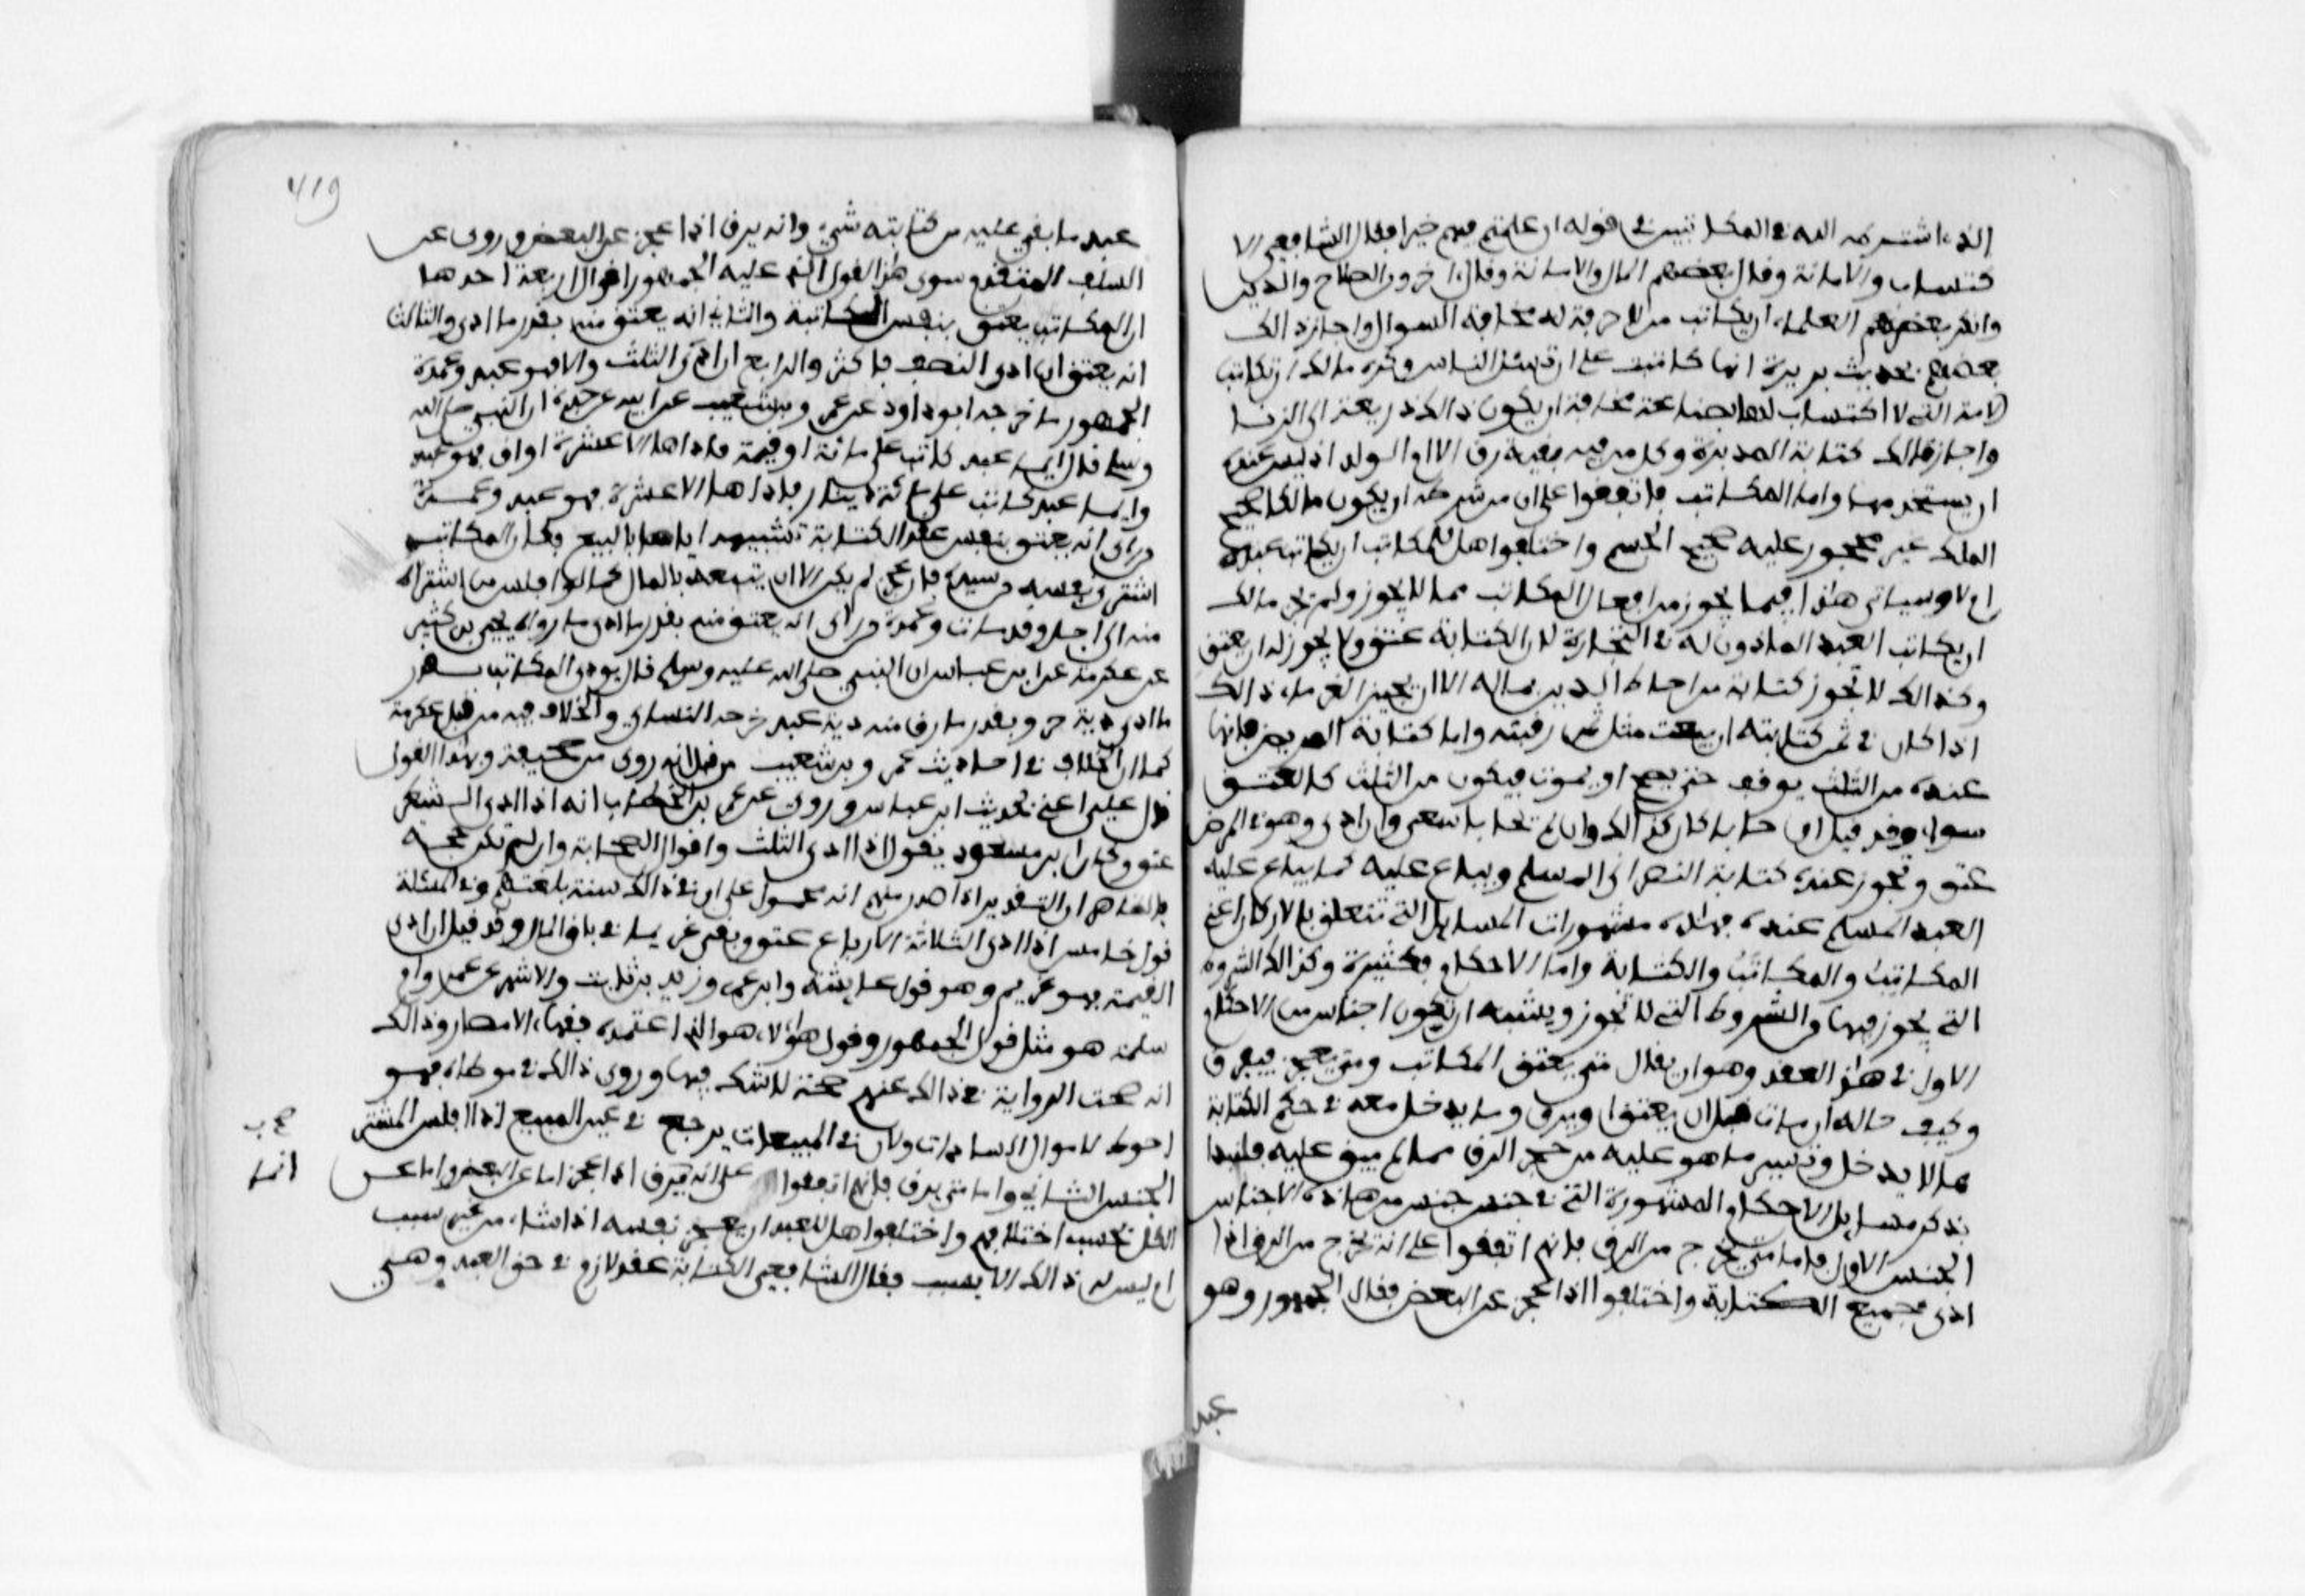 الذى اشترطه الله فى المكاتبين فى قوله ان علمتم فيهم خيرا فقال الشافعى الا
كتساب والامانة وقال بعضهم المال والامانة وقال اخرون الصلاح والدين
وانكر بعض العلماء ان يكاتب من لا حرفة له مخافة السوال واجاز ذالك
بعضهم لحديث بريرة انها كاتبت على ان تسئل الناس وكره مالك ان تكاتب
الامة التى لا اكتساب لها بصناعة مخافة ان يكون ذالك ذريعة الى الزنا
واجاز مالك كتابة المدبرة وكل من فيه بقية رق الا ام الولد اذ ليس عنده
ان يستخدمها واما المكاتب فاتفقوا على ان من شرطه ان يكون مالكا صحيح
الملك غير محجور عليه صحيح الجسم واختلفوا هل للمكاتب ان يكاتب عبده
ام لا وسياتى هذا فيما يجوز من افعال المكاتب مما لا يجوز ولم يجز مالك
ان يكاتب العبد الماذون له فى التجارة لان الكتابة عتق ولا يجوز له ان يعتق
وكذالك لا تجوز كتابة من احاط الدين بماله الا ان يجيز الغرماء ذالك
اذا كان فى ثمن كتابته ان بيعت مثل ثمن رقبته واما كتابة المريض فانها
عنده من الثلث يوقف حتى يصح او يموت فيكون من الثلث كالعتق
سواء وقد قيل ان حابا كان كذالك وان لم يحاب سعى وان ادى وهو فى المرض
عتق وتجوز عنده كتابة النصرانى المسلم ويباع عليه كما يباع عليه
العبد المسلم عنده فهاذه مشهورات المسايل التى تتعلق بالاركان اعنى
المكاتب والمكاتب والكتابة واما الاحكام فكثيرة وكذالك الشروط
التى يجوز فيها والشروط التى لا تجوز ويشبه ان يكون اجناس الاحكام
الاول فى هذا العقد وهو ان يقال متى يعتق المكاتب ومتى يعجز فيرق
وكيف حاله ان مات قبل ان يعتق او يرق وما يدخل معه فى حكم الكتابة
مما لا يدخل وتبيين ما هو عليه من حجر الرق مما لم يبق عليه فلنبدا
بذكر مسايل الاحكام المشهورة التى فى جنس جنس من هاذه الاجناس
الجنس الاول فاما متى يخرج من الرق فانهم اتفقوا على انه يخرج من الرق اذا
ادى جميع الكتابة واختلفوا اذا عجز عن البعض فقال الجمهور وهو
عبد
419
عبد ما بقى عليه من كتابته شىء وانه يرق اذا عجز عن البعض وروى عن
السلف المتقدم سوى هذا القول الذى عليه الجمهور اقوال اربعة احدها
ان المكاتب يعتق بنفس المكاتبة والثانى انه يعتق منه بقدر ما ادى والثالث
انه يعتق ان ادى النصف فاكثر والرابع ان ادى الثلث والا فهو عبد وعمدة
الجمهور ما خرجه ابو داود عن عمرو بن شعيب عن ابيه عن جده ان النبى صلى الله
وسلم قال ايما عبد كاتب على مائة اوقية فاداها الا عشرة اواق فهو عبد
وايما عبد كاتب على مائة دينار فاداها الا عشرة فهو عبد وعمدة
من راى انه يعتق بنفس عقد الكتابة تشبيهه اياها بالبيع فكان المكاتب
اشترى نفسه من سيده فان عجز لم يكن الا ان يتبعه بالمال كما لو افلس من اشتراه
منه الى اجل وقد مات وعمدة من راى انه يعتق منه بقدر ما ادى ما رواه يحيى بن كثير
عن عكرمة عن ابن عباس ان النبى صلى الله عليه وسلم قال يودى المكاتب بقدر
ما ادى دية حر وبقدر ما رق منه دية عبد خرجه النساى والخلاف فيه من قبل عكرمة
كما ان الخلاف فى احاديث عمرو بن شعيب من قبل انه روى من صحيفة وبهذا القول
قال على اعنى بحديث ابن عباس وروى عن عمر بن الخطاب انه اذا ادى الشطر
عتق وكان ابن مسعود يقول اذا ادى الثلث واقوال الصحابة وان لم تكن حجة
فالظاهر ان التقدير اذا صدر منهم انه محمول على ان فى ذالك سنة بلغتهم وفى المسئلة
قول خامس اذا ادى الثلاثة الارباع عتق وبقى غريما فى باقى المال وقد قيل ان ادى
القيمة فهو غريم وهو قول عايشة وابن عمر وزيد بن ثابت والاشهر عن عمر وام
سلمة هو مثل قول الجمهور وقول هؤلاء هو الذى اعتمده فقهاء الامصار وذالك
انه صحت الرواية فى ذالك عنهم صحة لا شك فيها وروى ذالك فى موطاه فهو
احوط لاموال السادات ولان فى المبيعات يرجع فى عين المبيع اذا افلس المشترى
الجنس الثانى واما متى يرق فانهم اتفقوا على انه يرق اذا عجز اما عن البعض واما عن
الكل بحسب اختلافهم واختلفوا هل للعبد ان يعجز نفسه اذا شاء من غير سبب
ام ليس له ذالك الا بسبب فقال الشافعى الكتابة عقد لازم فى حق العبد وهى
انما